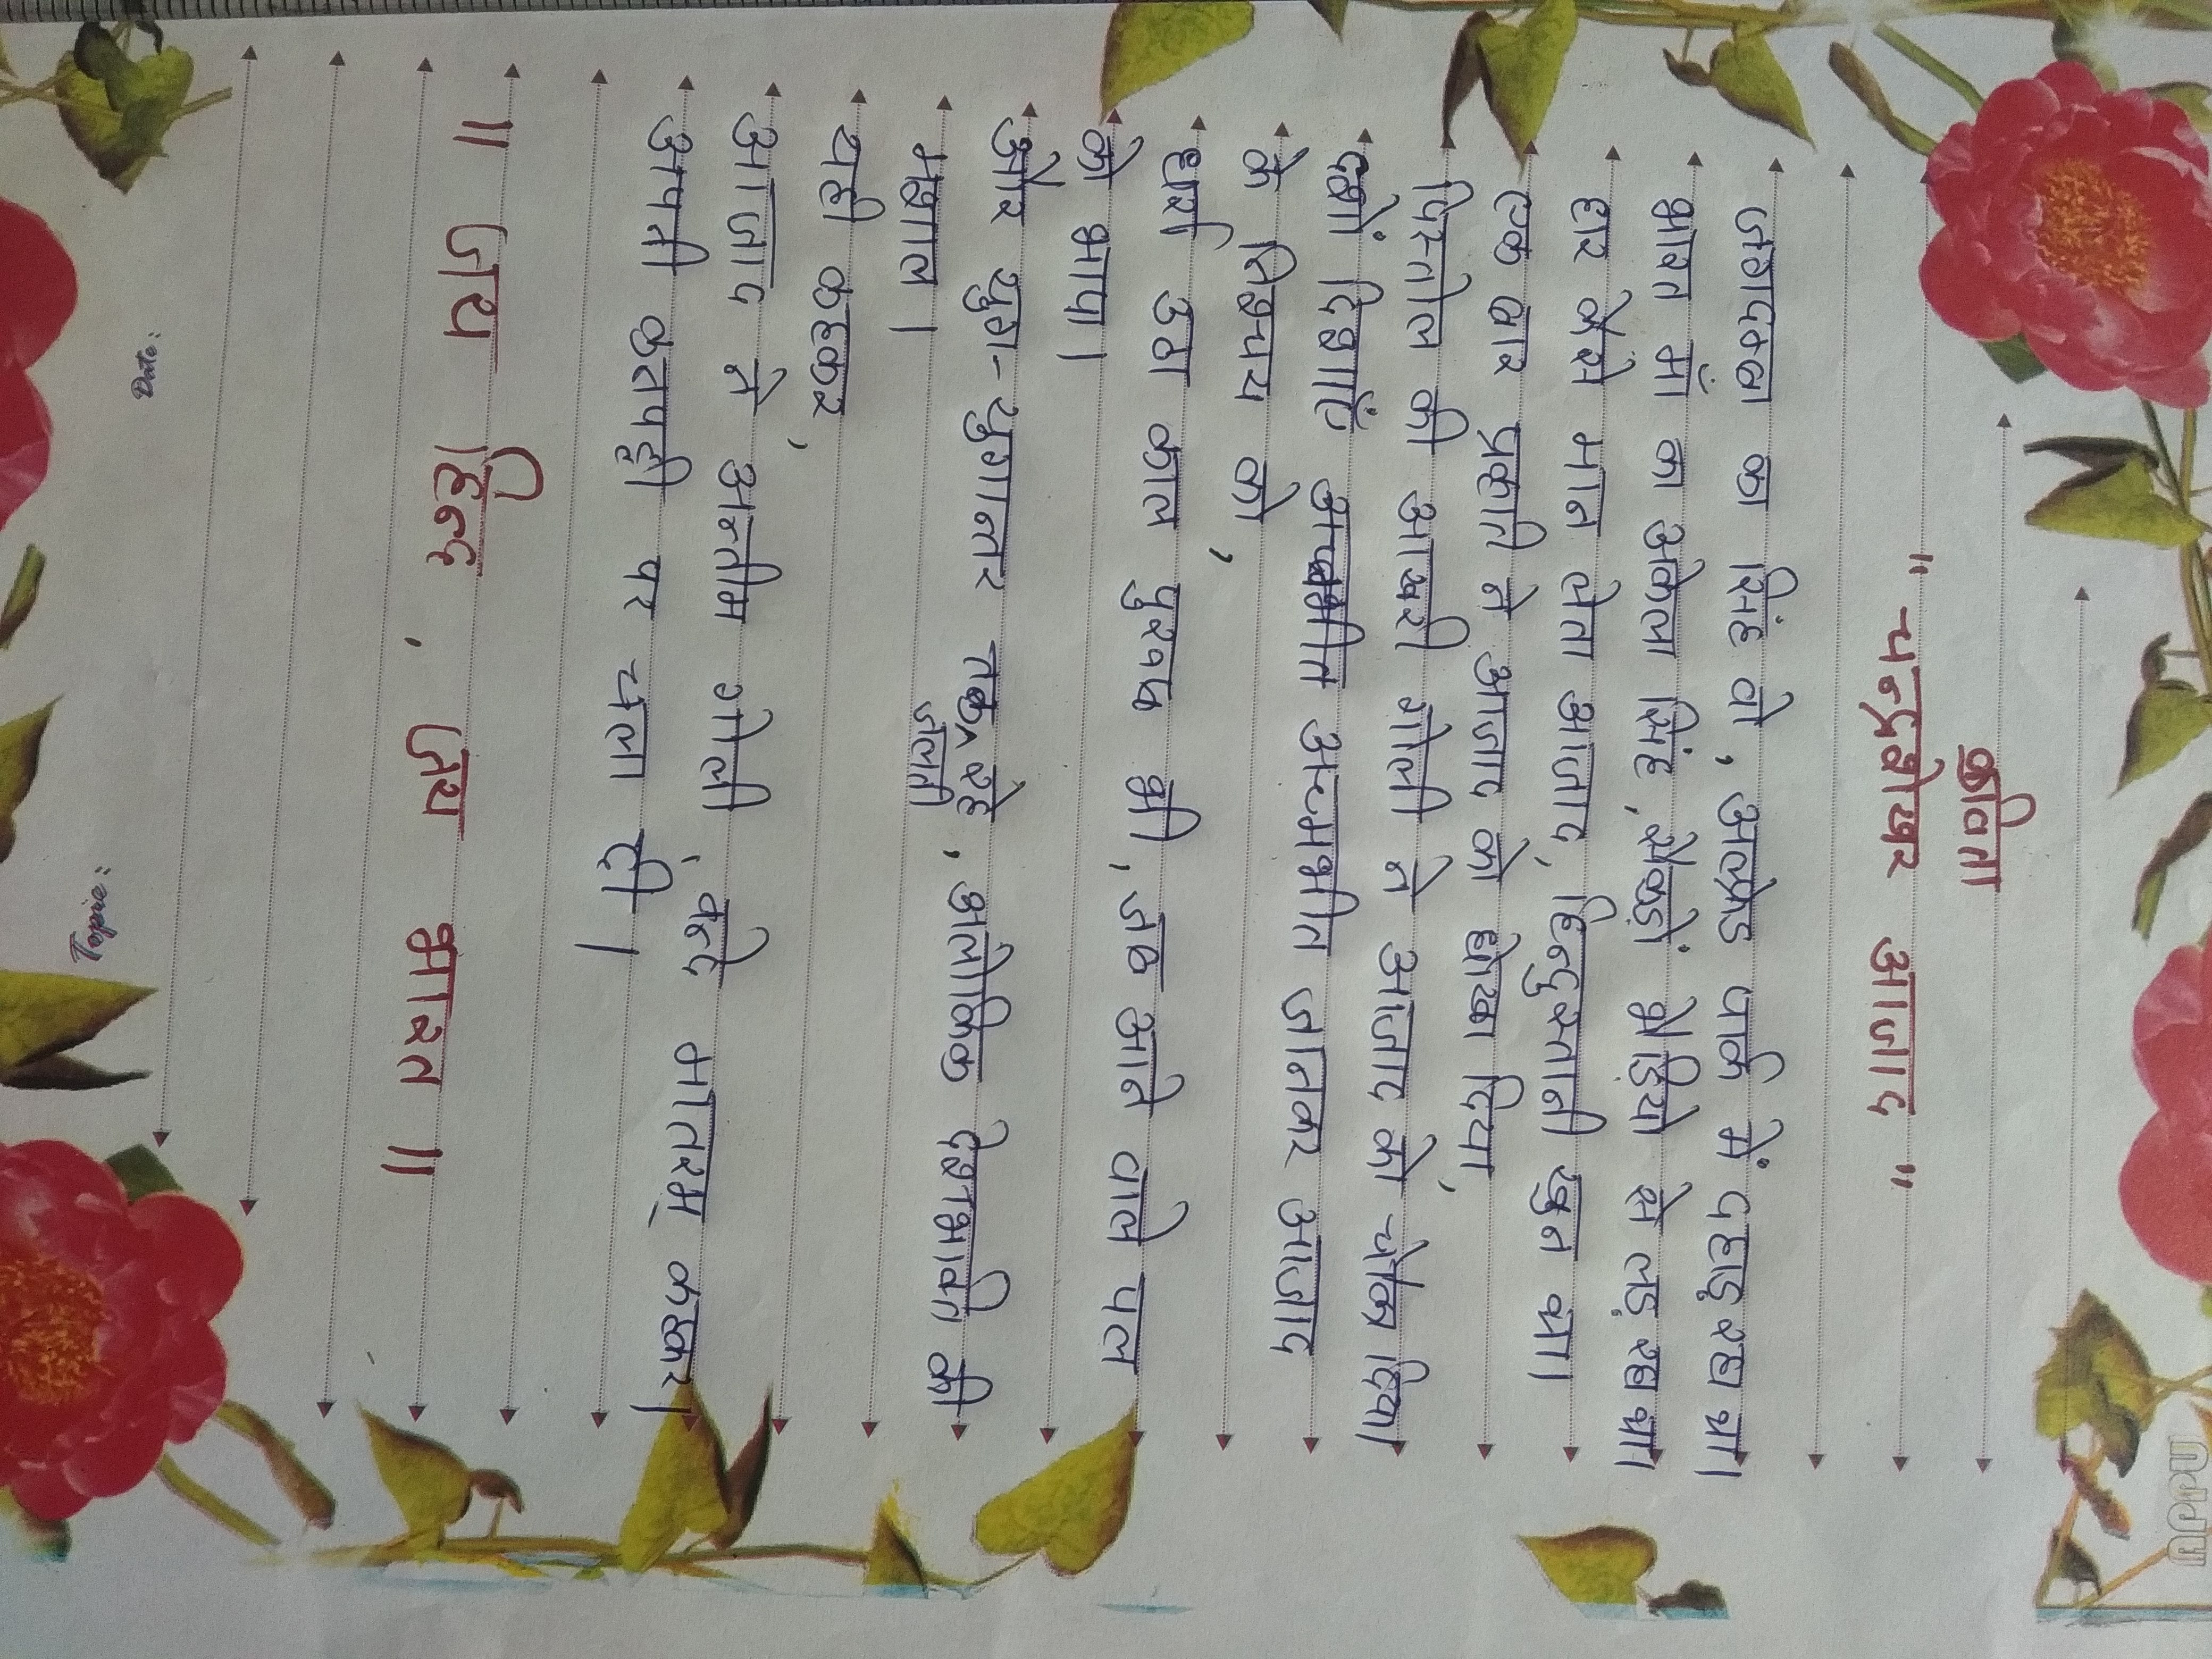 कविता
" चन्द्रशेखर आजाद "
का सिंह वो, अल्फ्रेड पार्क में दहाड़ रहा था।
भारत माँ का अकेला सिंह, सैकड़ों भेड़ियो से लड़ रहा था।
हार कैसे मान लेता आजाद, हिन्दुस्तानी खून था।
एक बार प्रकृति ने आजाद को धोखा दिया,
पिस्तौल की आखरी गोली ने आजाद को चौंका दिया।
दशों दिशाएँ अचम्भीत जानकर आजाद
के निश्चय को,
थर्रा उठा काल पुरुष भी, जब आने वाले पल
को भापा।
और युगा-युगान्तर तक जलती रहे, अलौकिक देशभक्ति की
मशाल।
यही कहकर,
आजाद ने अन्तीम गोली, वन्दे मातरम् कहकर।
अपनी कनपट्टी पर चला दी।
॥ जय हिन्द, जय भारत ॥
Date:
Topic:
APPU